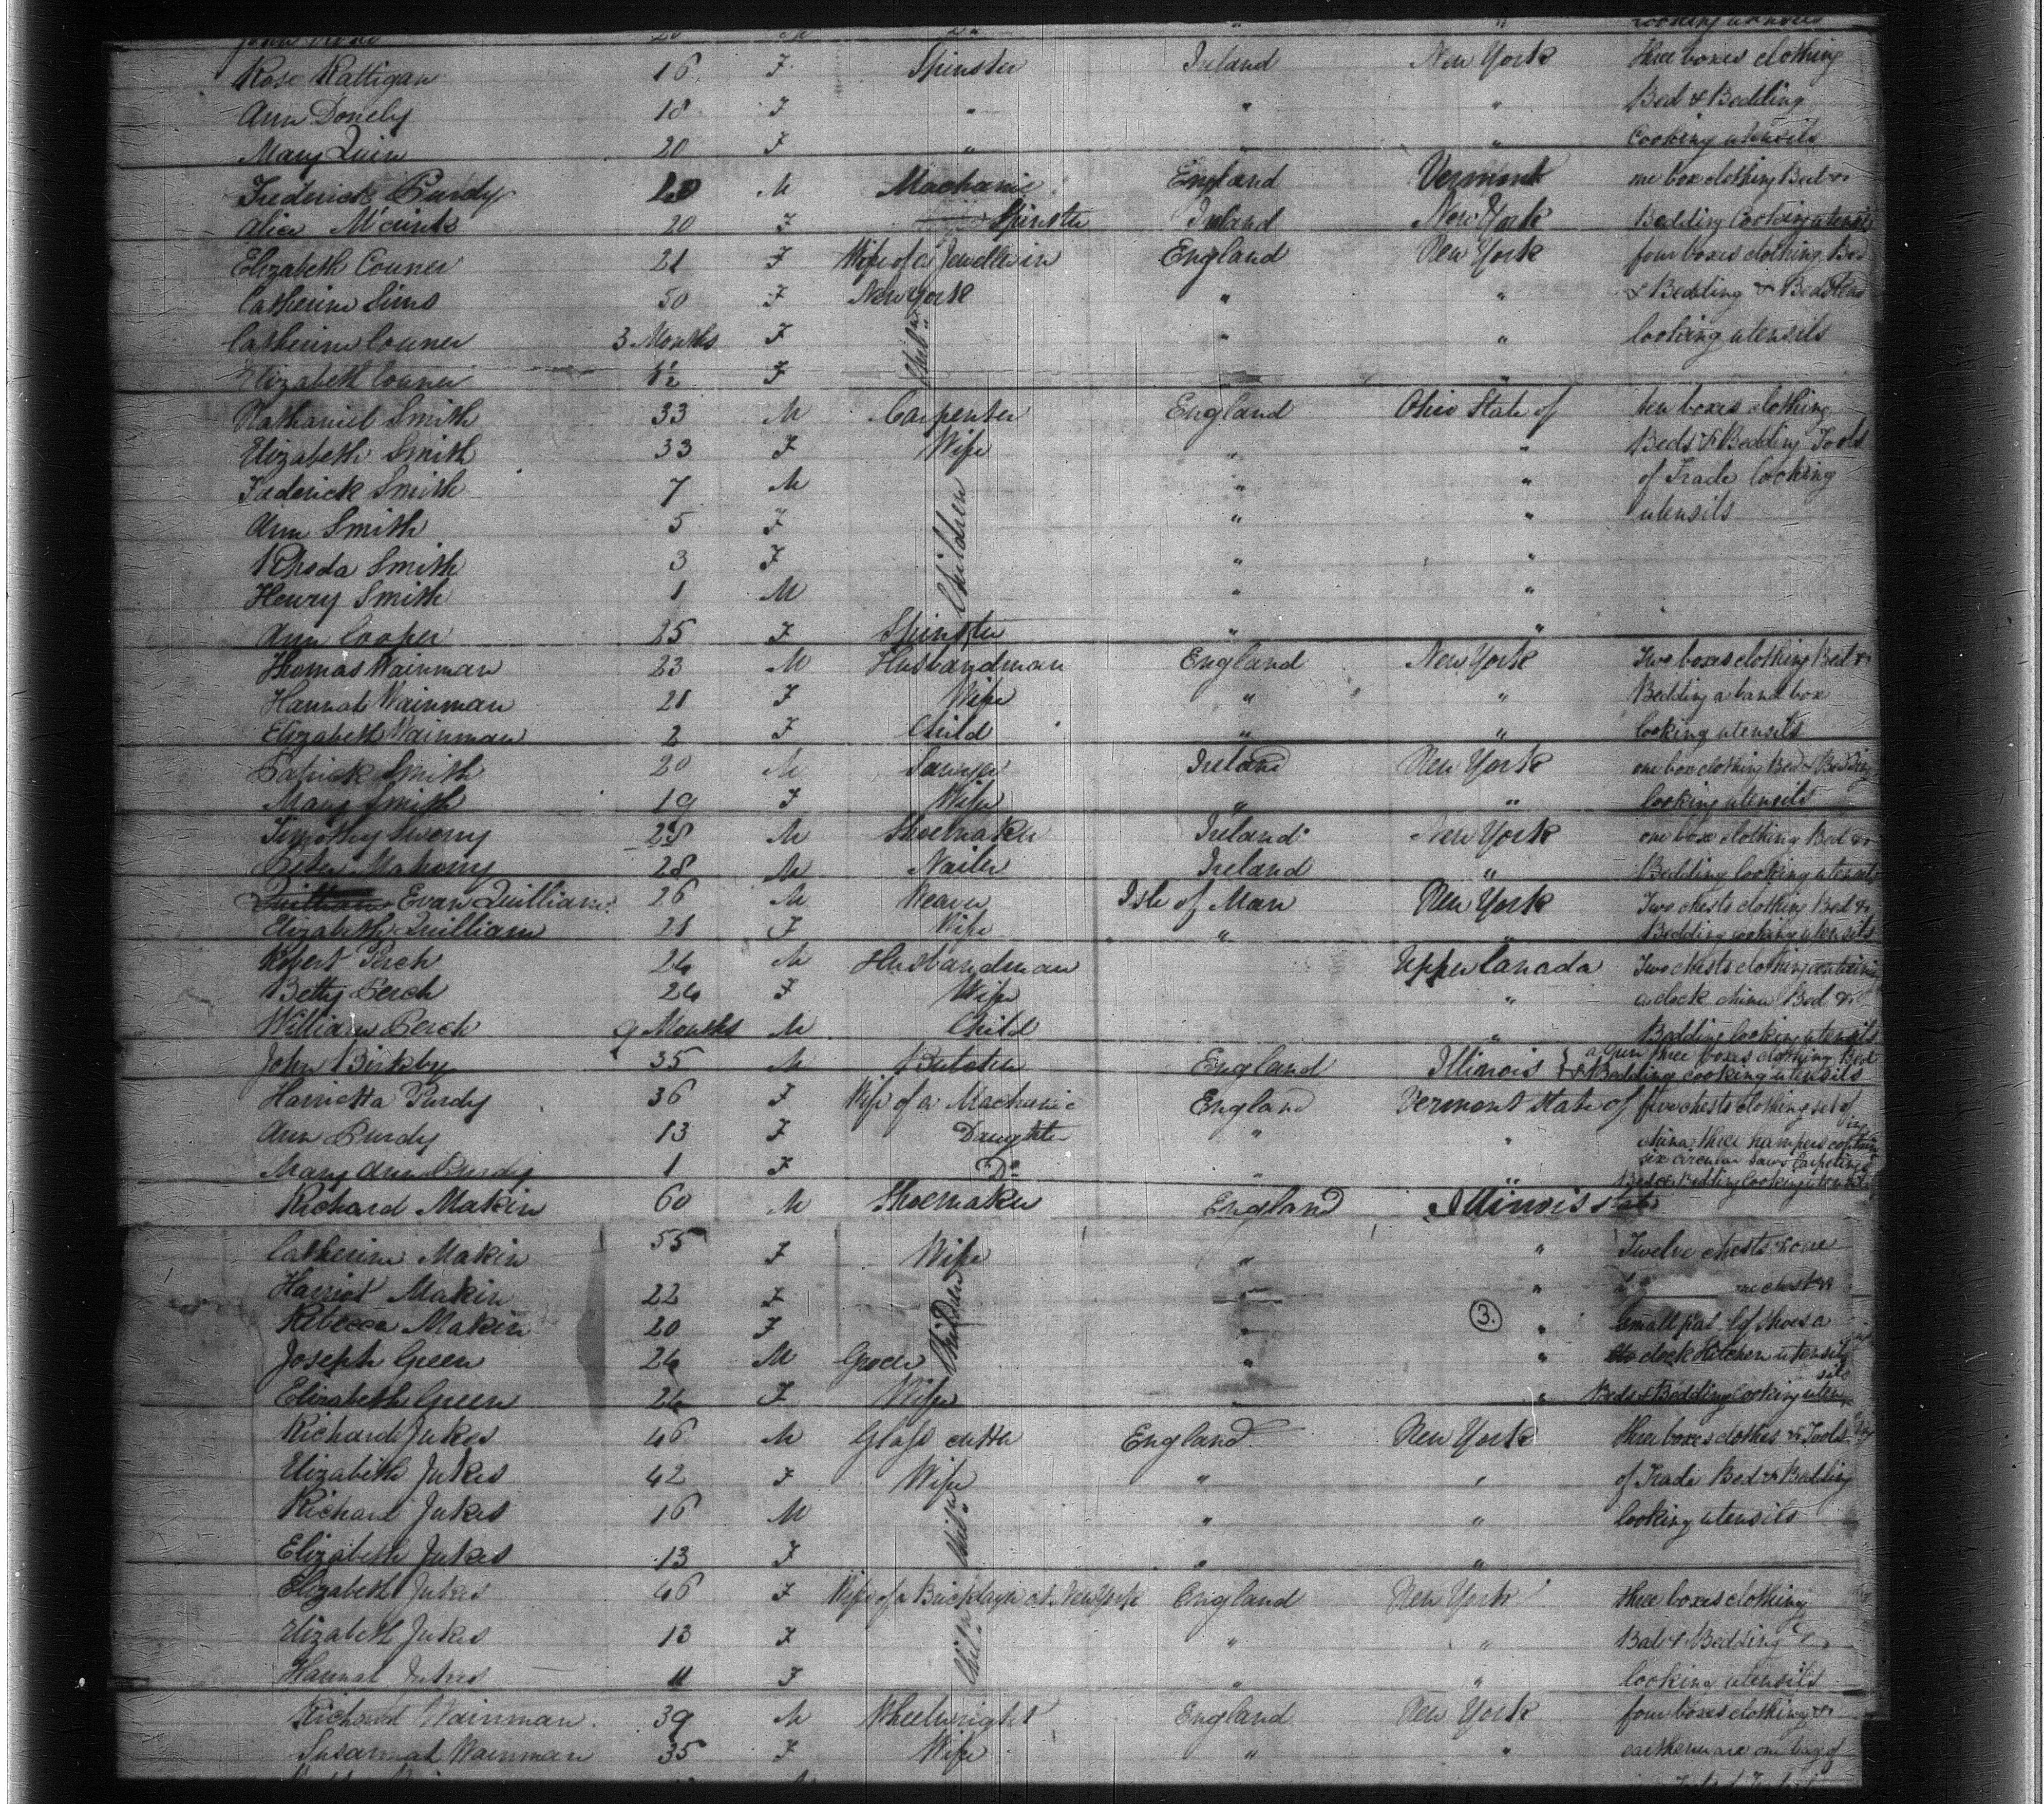 Cooking utensils
Rose Rattigan 16 F Spinster Ireland New York three boxes clothing
Ann Donely 18 F " " " Bed & Bedding
Mary Quin 20 F " " " Cooking utensils
Frederick Purdy M Mechanic England Vermont one box clothing Bed &
Alice 20 F Spinster Ireland New York Bedding Cooking utensils
Elizabeth Conner 21 F Wife of a Jeweller in England New York four boxes clothing Bed
Catherine Sims 50 F New York " " & Bedding & Bedstead
Catherine Conner 3 Months F " " Cooking utensils
Elizabeth Conner 1½ F
Nathaniel Smith 33 M Carpenter England Ohio State of ten boxes clothing
Elizabeth Smith 33 F Wife " " Beds & Bedding Tools
Frederick Smith 7 M " " of Trade Cooking
Ann Smith 5 F Children " " utensils
Rhoda Smith 3 F " "
Henry Smith 1 M " "
Ann Cooper 25 F Spinster " "
Thomas Wainman 23 M Husbandman England New York Two boxes clothing Bed &
Hannah Wainman 21 F Wife " " Bedding a band box
Elizabeth Wainman 2 F Child " " Cooking utensils
Patrick Smith 20 M Sawyer Ireland New York one box clothing Bed & Bedding
Mary Smith 19 F Wife " " Cooking utensils
Timothy Sweny 28 M Shoemaker Ireland New York one box clothing Bed &
Peter Mahony 28 M Nailer Ireland " Bedding Cooking utensils
Evan Quilliam 26 M Weaver Isle of Man New York Two chests clothing Bed &
Elizabeth Quilliam 21 F Wife " " Bedding cooking utensils
Robert Perch 24 M Husbandman Upper Canada Two chests clothing containing
Betty Perch 24 F Wife " a clock china Bed &
William Perch 9 Months M Child " Bedding Cooking utensils
John Birkby 35 M Butcher England Illinois a Gun three boxes clothing Bed
& Bedding cooking utensils
Harrietta Purdy 36 F Wife of a Mechanic England Vermont State of five chests clothing set of
Ann Purdy 13 F Daughter " " china three hampers containing
Mary Ann Purdy 1 F Do " " six circular saws Carpeting
Bed & Bedding Cooking utensils
Richard Makin 60 M Shoemaker England Illinois State
Catherine Makin 55 F Wife " " Twelve chests & one
Harriot Makin 22 F Children " " chest &
Rebecca Makin 20 F " (3.) " small of shoes a
Joseph Green 24 M Grocer " " clock Kitchen utensils
Elizabeth Green 24 F Wife " Beds & Bedding Cooking utensils
Richard Jukes 46 M Glass cutter England New York three boxes clothes & Tools
Elizabeth Jukes 42 F Wife " " of Trade Bed & Bedding
Richard Jukes 16 M " " Cooking utensils
Elizabeth Jukes 13 F " "
Elizabeth Jukes 46 F Wife of a Bricklayer at New York England New York three boxes clothing
Elizabeth Jukes 13 F " " Bed & Bedding &
Hannah Jukes 11 F " " Cooking utensils
Richard Wainman 39 M Wheelwright England New York four boxes clothing &
Susannah Wainman 35 F Wife " " earthenware one bag of